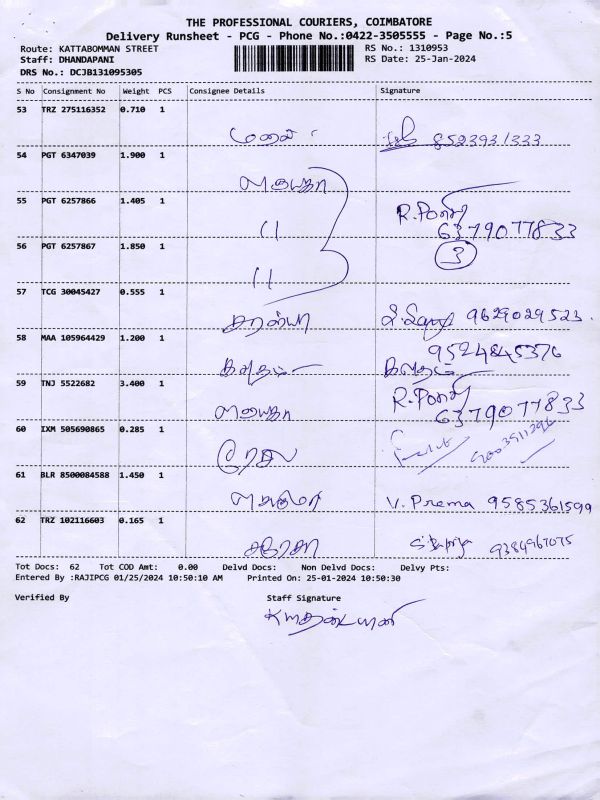 THE PROFESSIONAL COURIERS, COIMBATORE
Delivery Runsheet - PCG - Phone No.:0422-3505555 - Page No.:5
Route: KATTABOMMAN STREET RS No.: 1310953
Staff: DHANDAPANI RS Date: 25-Jan-2024
DRS No.: DCJB131095305
S No Consignment No Weight PCS Consignee Details Signature
53 TRZ 275116352 0.710 1
8523931333
54 PGT 6347039 1.900 1
55 PGT 6257866 1.405 1
R.Pony
6379077833
56 PGT 6257867 1.850 1
11
3
11
57 TCG 30045427 0.555 1
சரன்யா 9629029523.
58 MAA 105964429 1.200 1
9524845376
59 TNJ 5522682 3.400 1
R.Pony
6379077833
60 IXM 505690865 0.285 1
61 BLR 8500084588 1.450 1
V. Prema 9585361599
62 TRZ 102116603 0.165 1
9384967075
Tot Docs: 62 Tot COD Amt: 0.00 Delvd Docs: Non Delvd Docs: Delvy Pts:
Entered By :RAJIPCG 01/25/2024 10:50:10 AM Printed On: 25-01-2024 10:50:30
Verified By Staff Signature